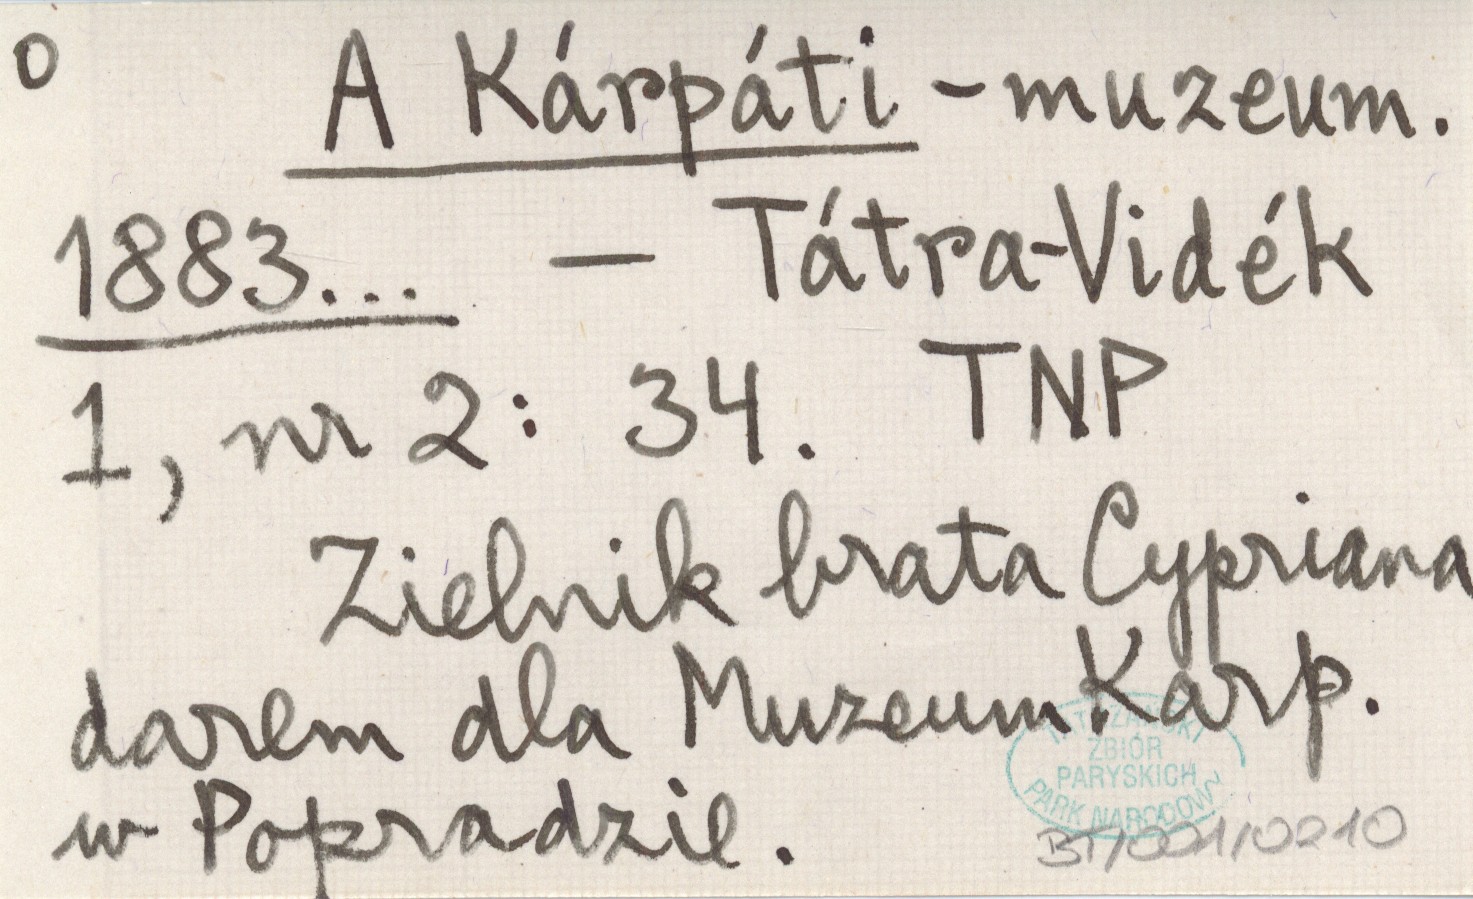 o
A Kárpáti-muzeum.
1883... — Tátra-Vidék
1, nr 2: 34. TNP
Zielnik brata Cypriana
darem dla Muzeum Karp.
w Popradzie.
TATRZAŃSKI
ZBIÓR
PARYSKICH
PARK NARODOWY
BT/001/0210